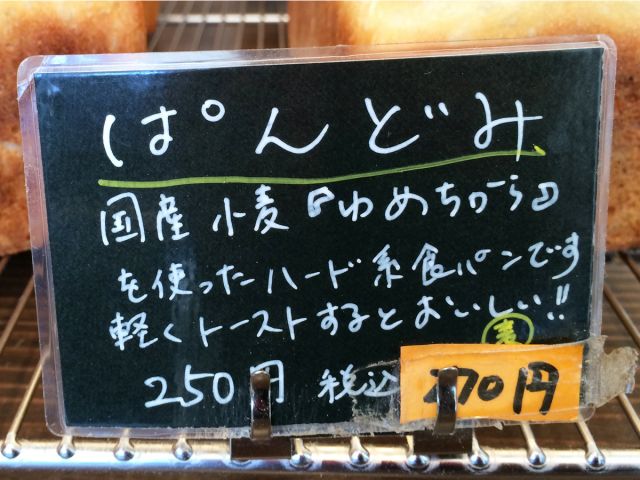 ぱんどみ
国産小麦『ゆめちから』
を使ったハード系食パンです
軽くトーストするとおいしい!!
麦
250円 税込 270円